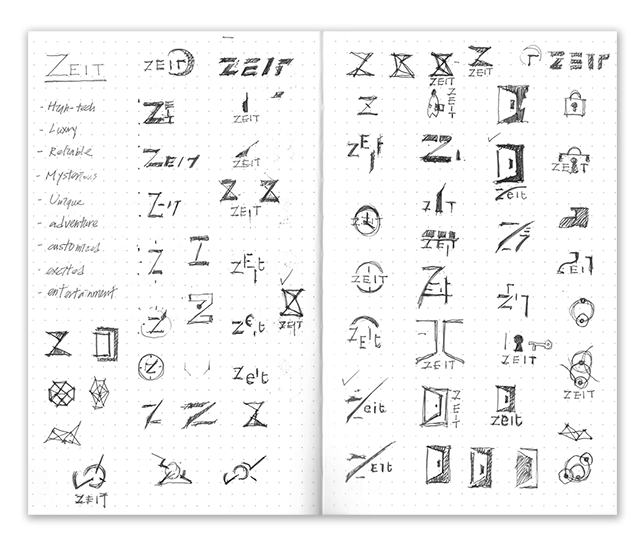 ZEIT
- High-tech
- Luxry
- Reliable
- Mysterious
- Unique
- adventure
- customized
- excited
- entertainment
ZEIT
ZEIT
ZEIT
ZEIT
ZEIT
ZEIT
Z-IT
ZEIT
Z
I
ZEIt
Z
Z
ZEIT
zeit
Z
zeit
Z
Z
Z
Z
ZEIT
ZEIT
ZEIT
ZEIT
Z
ZEIT
ZEIT
Z
Zeit
ZEIT
ZEIT
ZEIT
ZEIT
ZEIt
ZEIT
ZEIT
Zeit
ZEIT
zeit
ZEIT
ZEIT